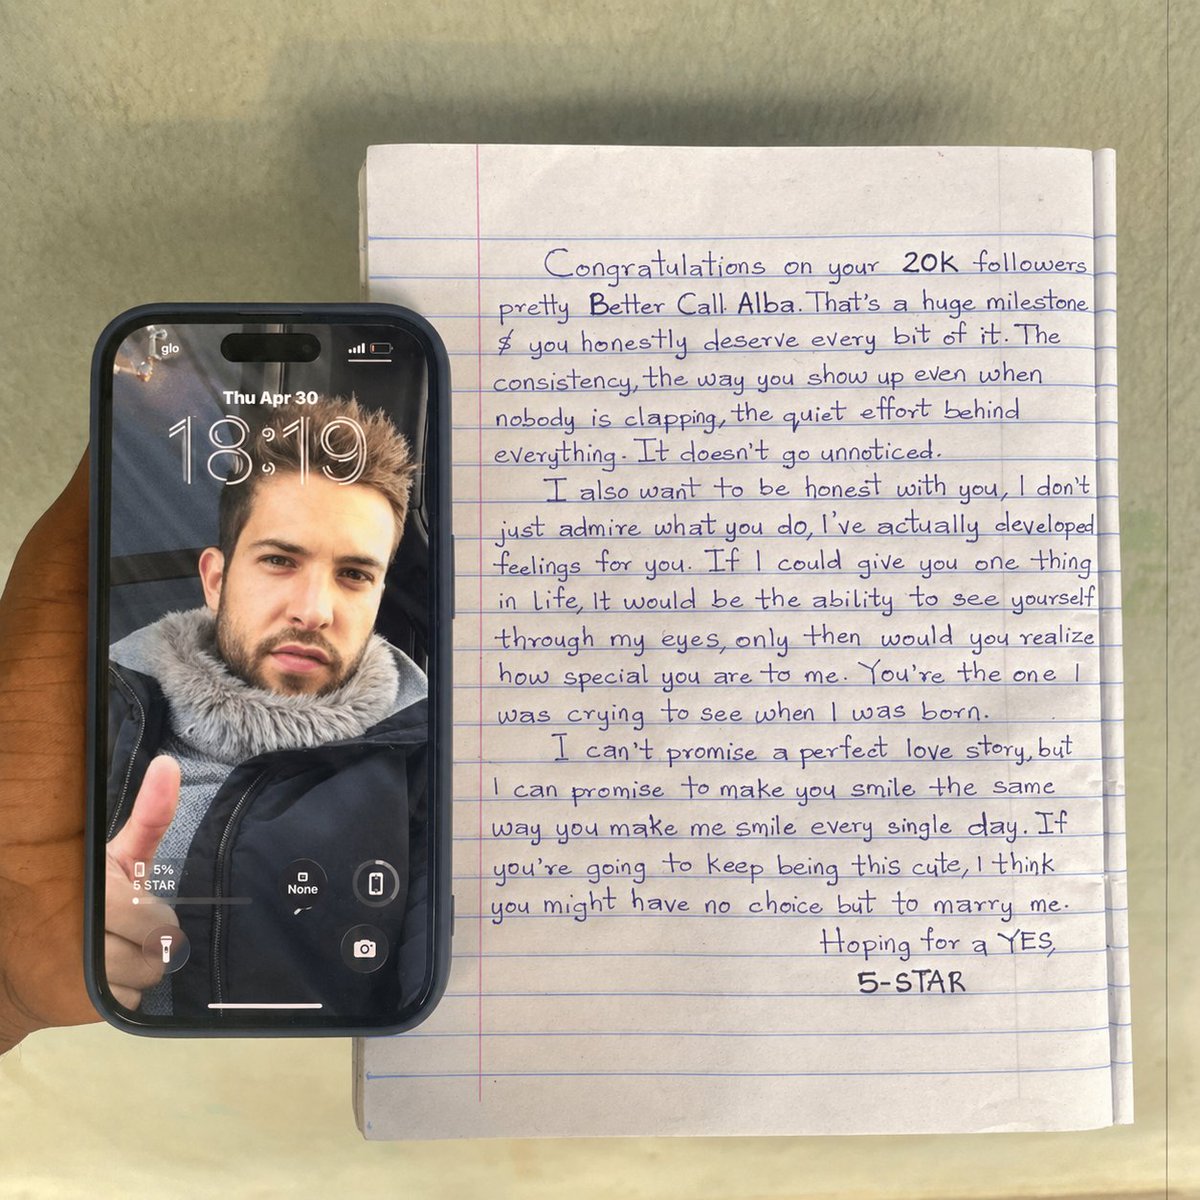 glo
Thu Apr 30
18:19
5%
5 STAR
None
Congratulations on your 20K followers
pretty Better Call Alba. That's a huge milestone
$ you honestly deserve every bit of it. The
consistency, the way you show up even when
nobody is clapping, the quiet effort behind
everything. It doesn't go unnoticed.
I also want to be honest with you, I don't
just admire what you do, I've actually developed
feelings for you. If I could give you one thing
in life, It would be the ability to see yourself
through my eyes, only then would you realize
how special you are to me. You're the one I
was crying to see when I was born.
I can't promise a perfect love story, but
I can promise to make you smile the same
way you make me smile every single day. If
you're going to keep being this cute, I think
you might have no choice but to marry me.
Hoping for a YES,
5-STAR